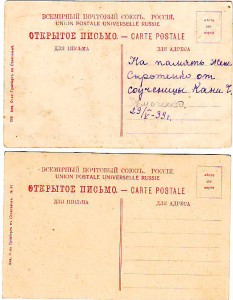 ВСЕМІРНЫЙ ПОЧТОВЫЙ СОЮЗЪ. РОССІЯ.
UNION POSTALE UNIVERSELLE RUSSIE
ОТКРЫТОЕ ПИСЬМО. — CARTE POSTALE
ДЛЯ ПИСЬМА
ДЛЯ АДРЕСА
На память
Сыротенко от
соученицы
29/V-39г.
ВСЕМІРНЫЙ ПОЧТОВЫЙ СОЮЗЪ. РОССІЯ.
UNION POSTALE UNIVERSELLE RUSSIE
ОТКРЫТОЕ ПИСЬМО. — CARTE POSTALE
ДЛЯ ПИСЬМА
ДЛЯ АДРЕСА